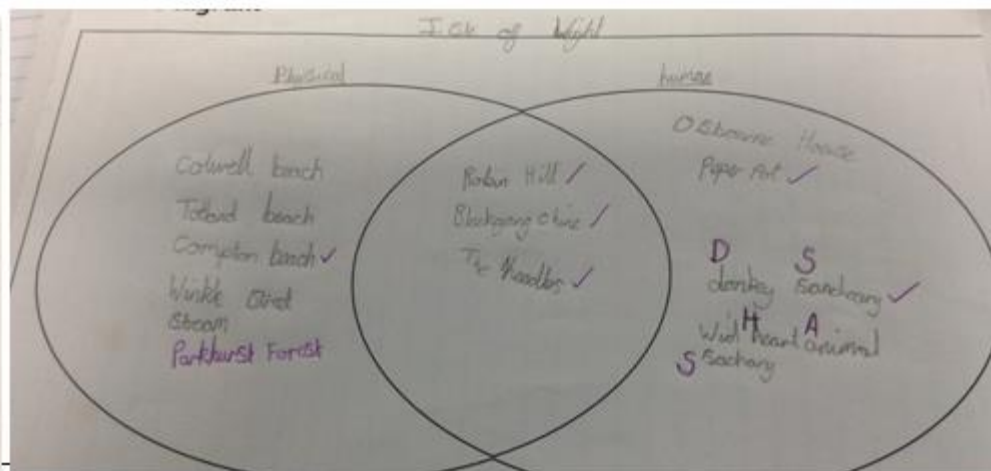 Isle of Wight
Physical
human
Colwell beach
Totland beach
Compton beach ✓
Winkle
Steam
Parkhurst Forest
Robin Hill ✓
Blackgang Chine ✓
The Needles ✓
Osborne House
Paper Art ✓
D S
donkey Sanctuary ✓
H A
Wild heart animal
S Sactuary